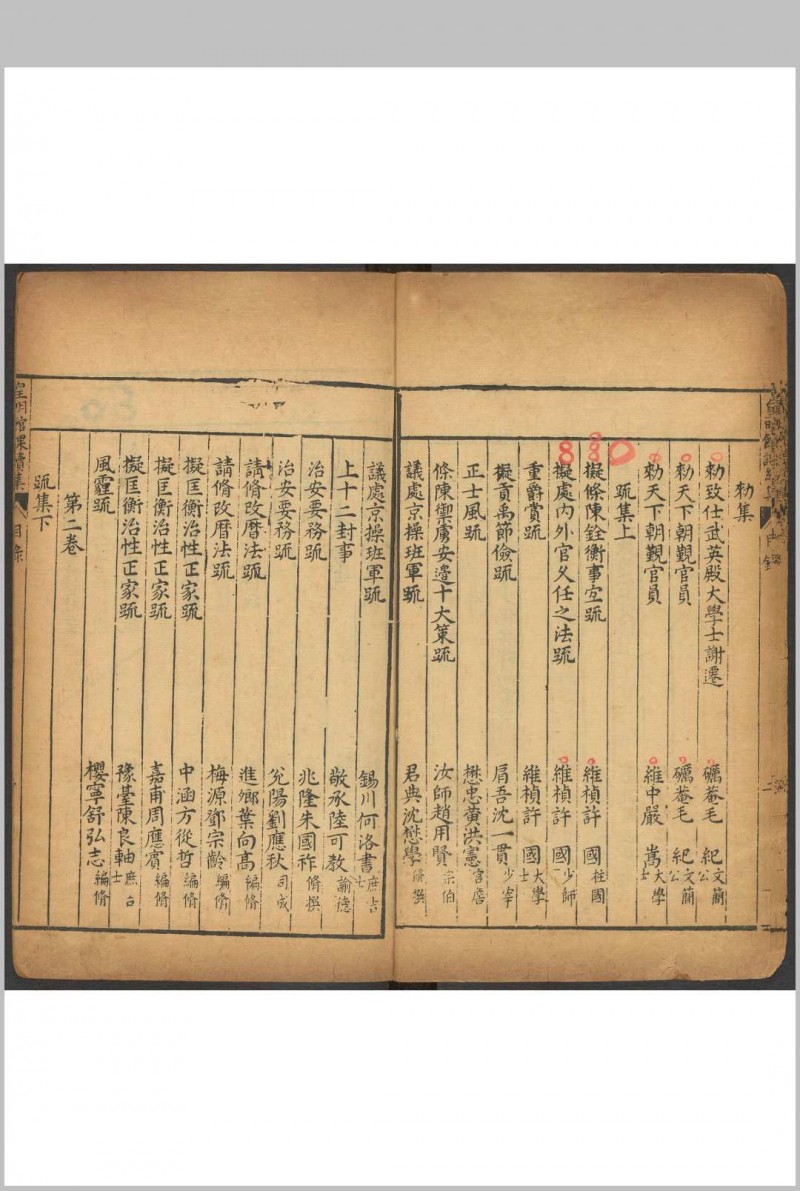 勑集
勑致仕武英殿大學士謝遷 礪菴毛 紀文簡公
勑天下朝覲官員 礪菴毛 紀文簡公
勑天下朝覲官員 維中嚴 嵩大學士
䟽集上
擬條陳銓衡事宜䟽 維楨許 國柱國
擬處內外官久任之法䟽 維楨許 國少師
重爵賞䟽 維楨許 國大學士
擬貢禹節儉䟽 肩吾沈一貫少宰
正士風䟽 懋忠黃洪憲宮詹
條陳禦虜安邉十大策䟽 汝師趙用賢宗伯
議處京操班軍䟽 君典沈懋學脩撰
議處京操班軍䟽 錫川何洛書庶吉士
上十二封事 敬承陸可教諭德
治安要務䟽 兆隆朱國祚脩撰
治安要務䟽 兊陽劉應秋司成
請脩改曆法䟽 進卿葉向高編脩
請脩改曆法䟽 梅源鄧宗齡編脩
擬匡衡治性正家䟽 中涵方從哲編脩
擬匡衡治性正家䟽 嘉甫周應賓編脩
擬匡衡治性正家䟽 豫臺陳良軸庶吉士
風霾䟽 櫻寧舒弘志編脩
第二卷
䟽集下
皇明館課續集 目錄